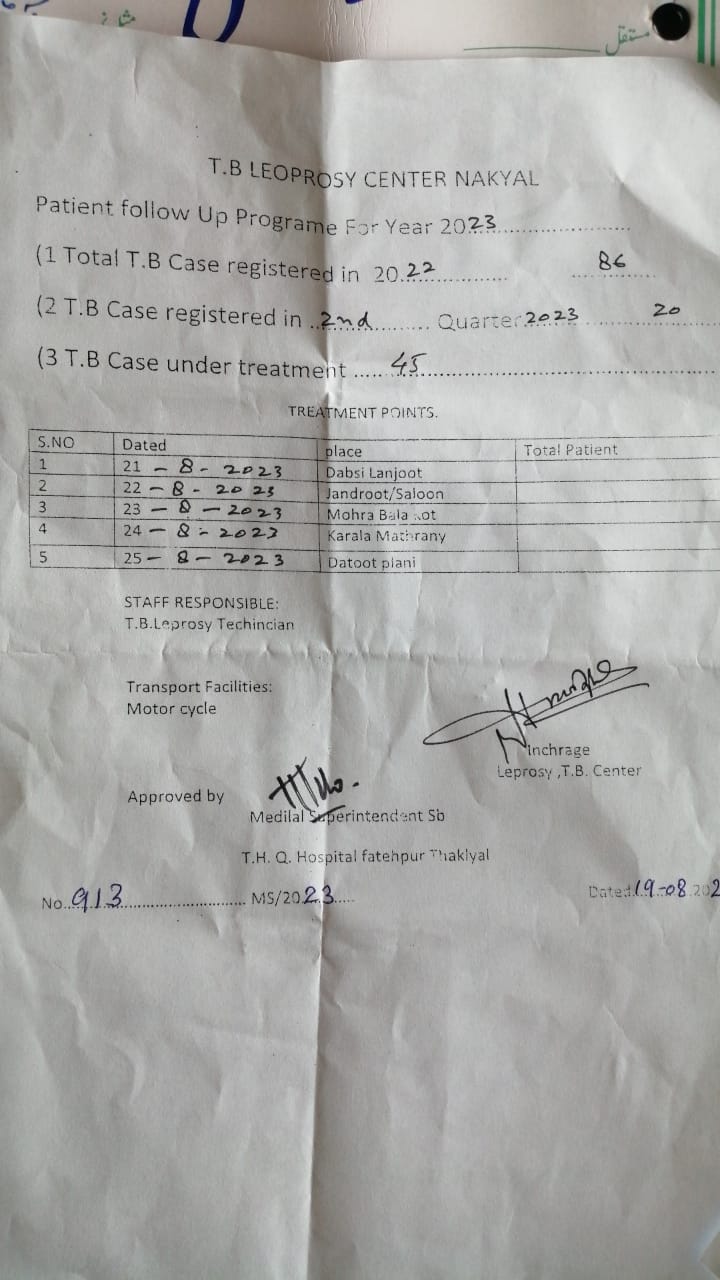 مستقل
T.B LEOPROSY CENTER NAKYAL
Patient follow Up Programe For Year 2023
(1 Total T.B Case registered in 20.22 ............... 86
(2 T.B Case registered in ..2nd......... Quarter 2023 ............... 20
(3 T.B Case under treatment ..... 45...............
TREATMENT POINTS.
S.NO Dated place Total Patient
1 21 - 8 - 2023 Dabsi Lanjoot
2 22 - 8 - 2023 Jandroot/Saloon
3 23 - 8 - 2023 Mohra Bala
4 24 - 8 - 2023 Karala Mathrany
5 25 - 8 - 2023 Datoot plani
STAFF RESPONSIBLE:
T.B.Leprosy Techincian
Transport Facilities:
Motor cycle
Inchrage
Leprosy ,T.B. Center
Approved by
Medilal Superintendent Sb
T.H. Q. Hospital fatehpur Thaklyal
No..913............... MS/2023..... Dated 19-08 202